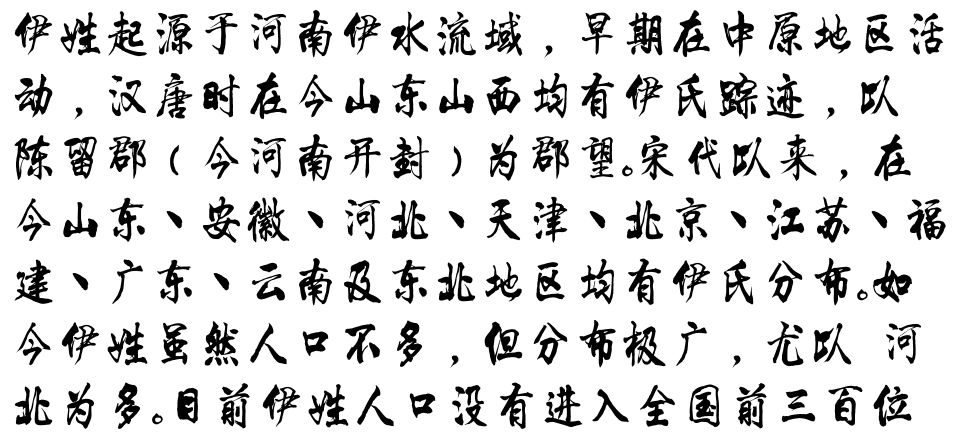 伊姓起源于河南伊水流域，早期在中原地区活
动，汉唐时在今山东山西均有伊氏踪迹，以
陈留郡（今河南开封）为郡望。宋代以来，在
今山东、安徽、河北、天津、北京、江苏、福
建、广东、云南及东北地区均有伊氏分布。如
今伊姓虽然人口不多，但分布极广，尤以 河
北为多。目前伊姓人口没有进入全国前三百位